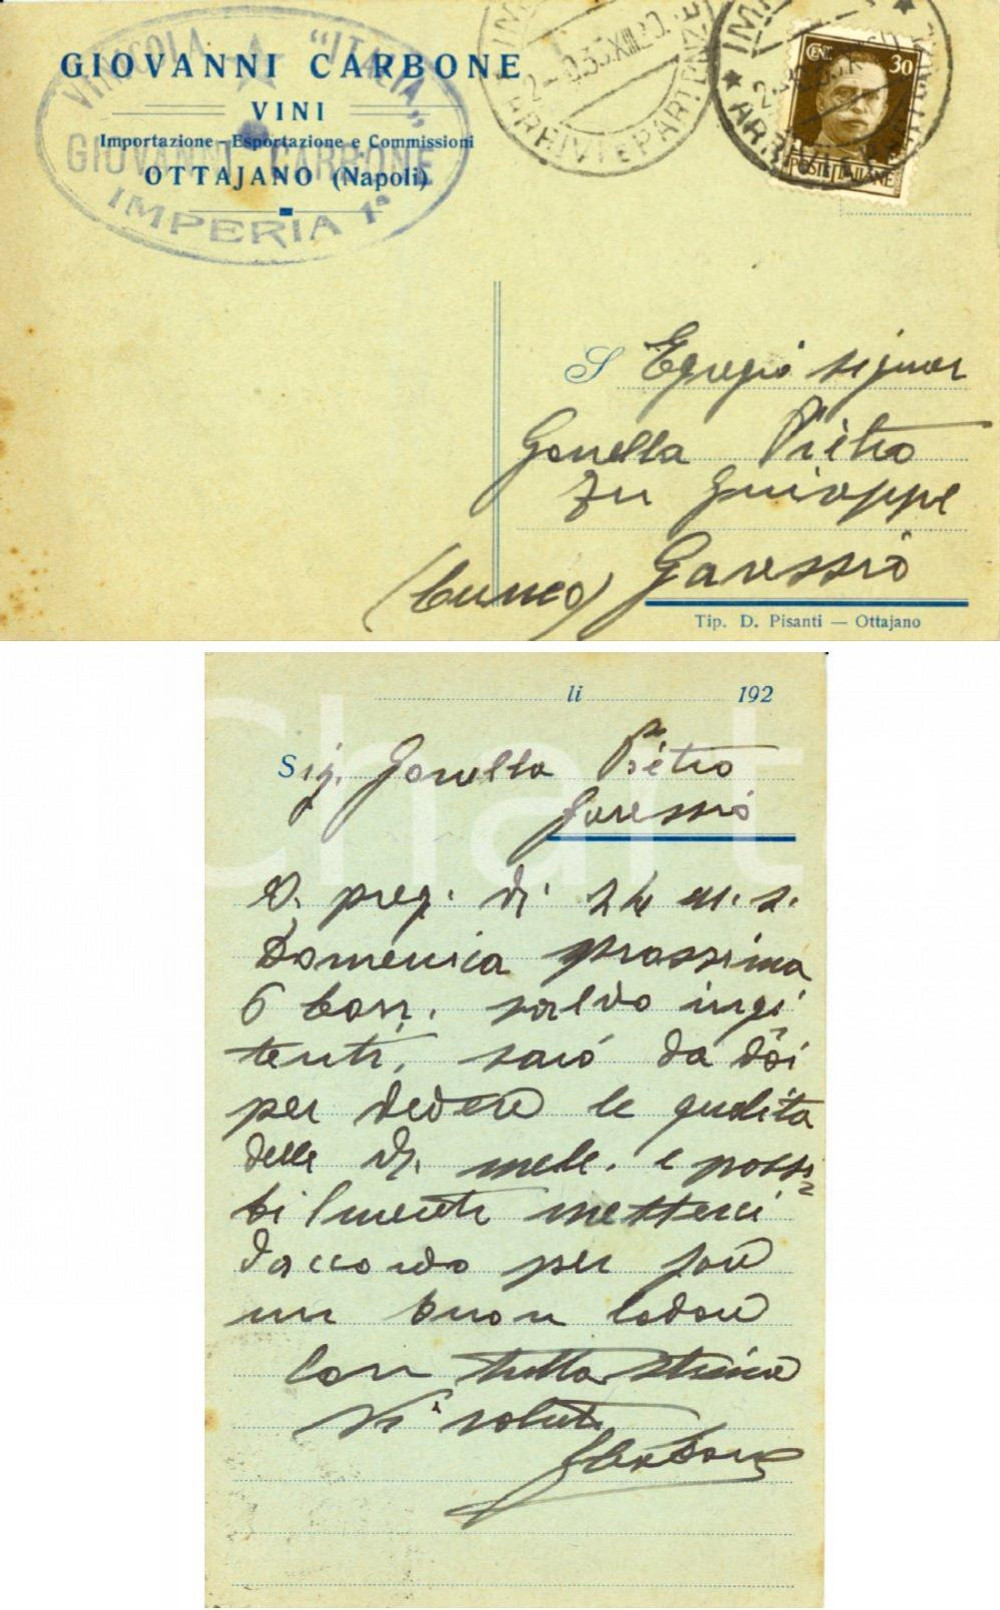 GIOVANNI CARBONE
VINI
Importazione - Esportazione e Commissioni
OTTAJANO (Napoli)
VINICOLA "ITALIA"
GIOVANNI CARBONE
IMPERIA 1ª
ARRIVI E PARTENZE
CENT. 30
POSTE ITALIANE
S Egregio signor
Gonella Pietro
fu Giuseppe
Garessio
(Cuneo)
Tip. D. Pisanti — Ottajano
li 192
Sig. Gonella Pietro
Garessio
V. preg. di 24 m. s.
Domenica prossima
6 corr. salvo
sarò da Voi
per vedere le qualità
delle V. mele. e possi
bilmente metterci
daccordo per fare
un buon lavoro
Con tutta stima
Vi saluto
GCarbone
Chart